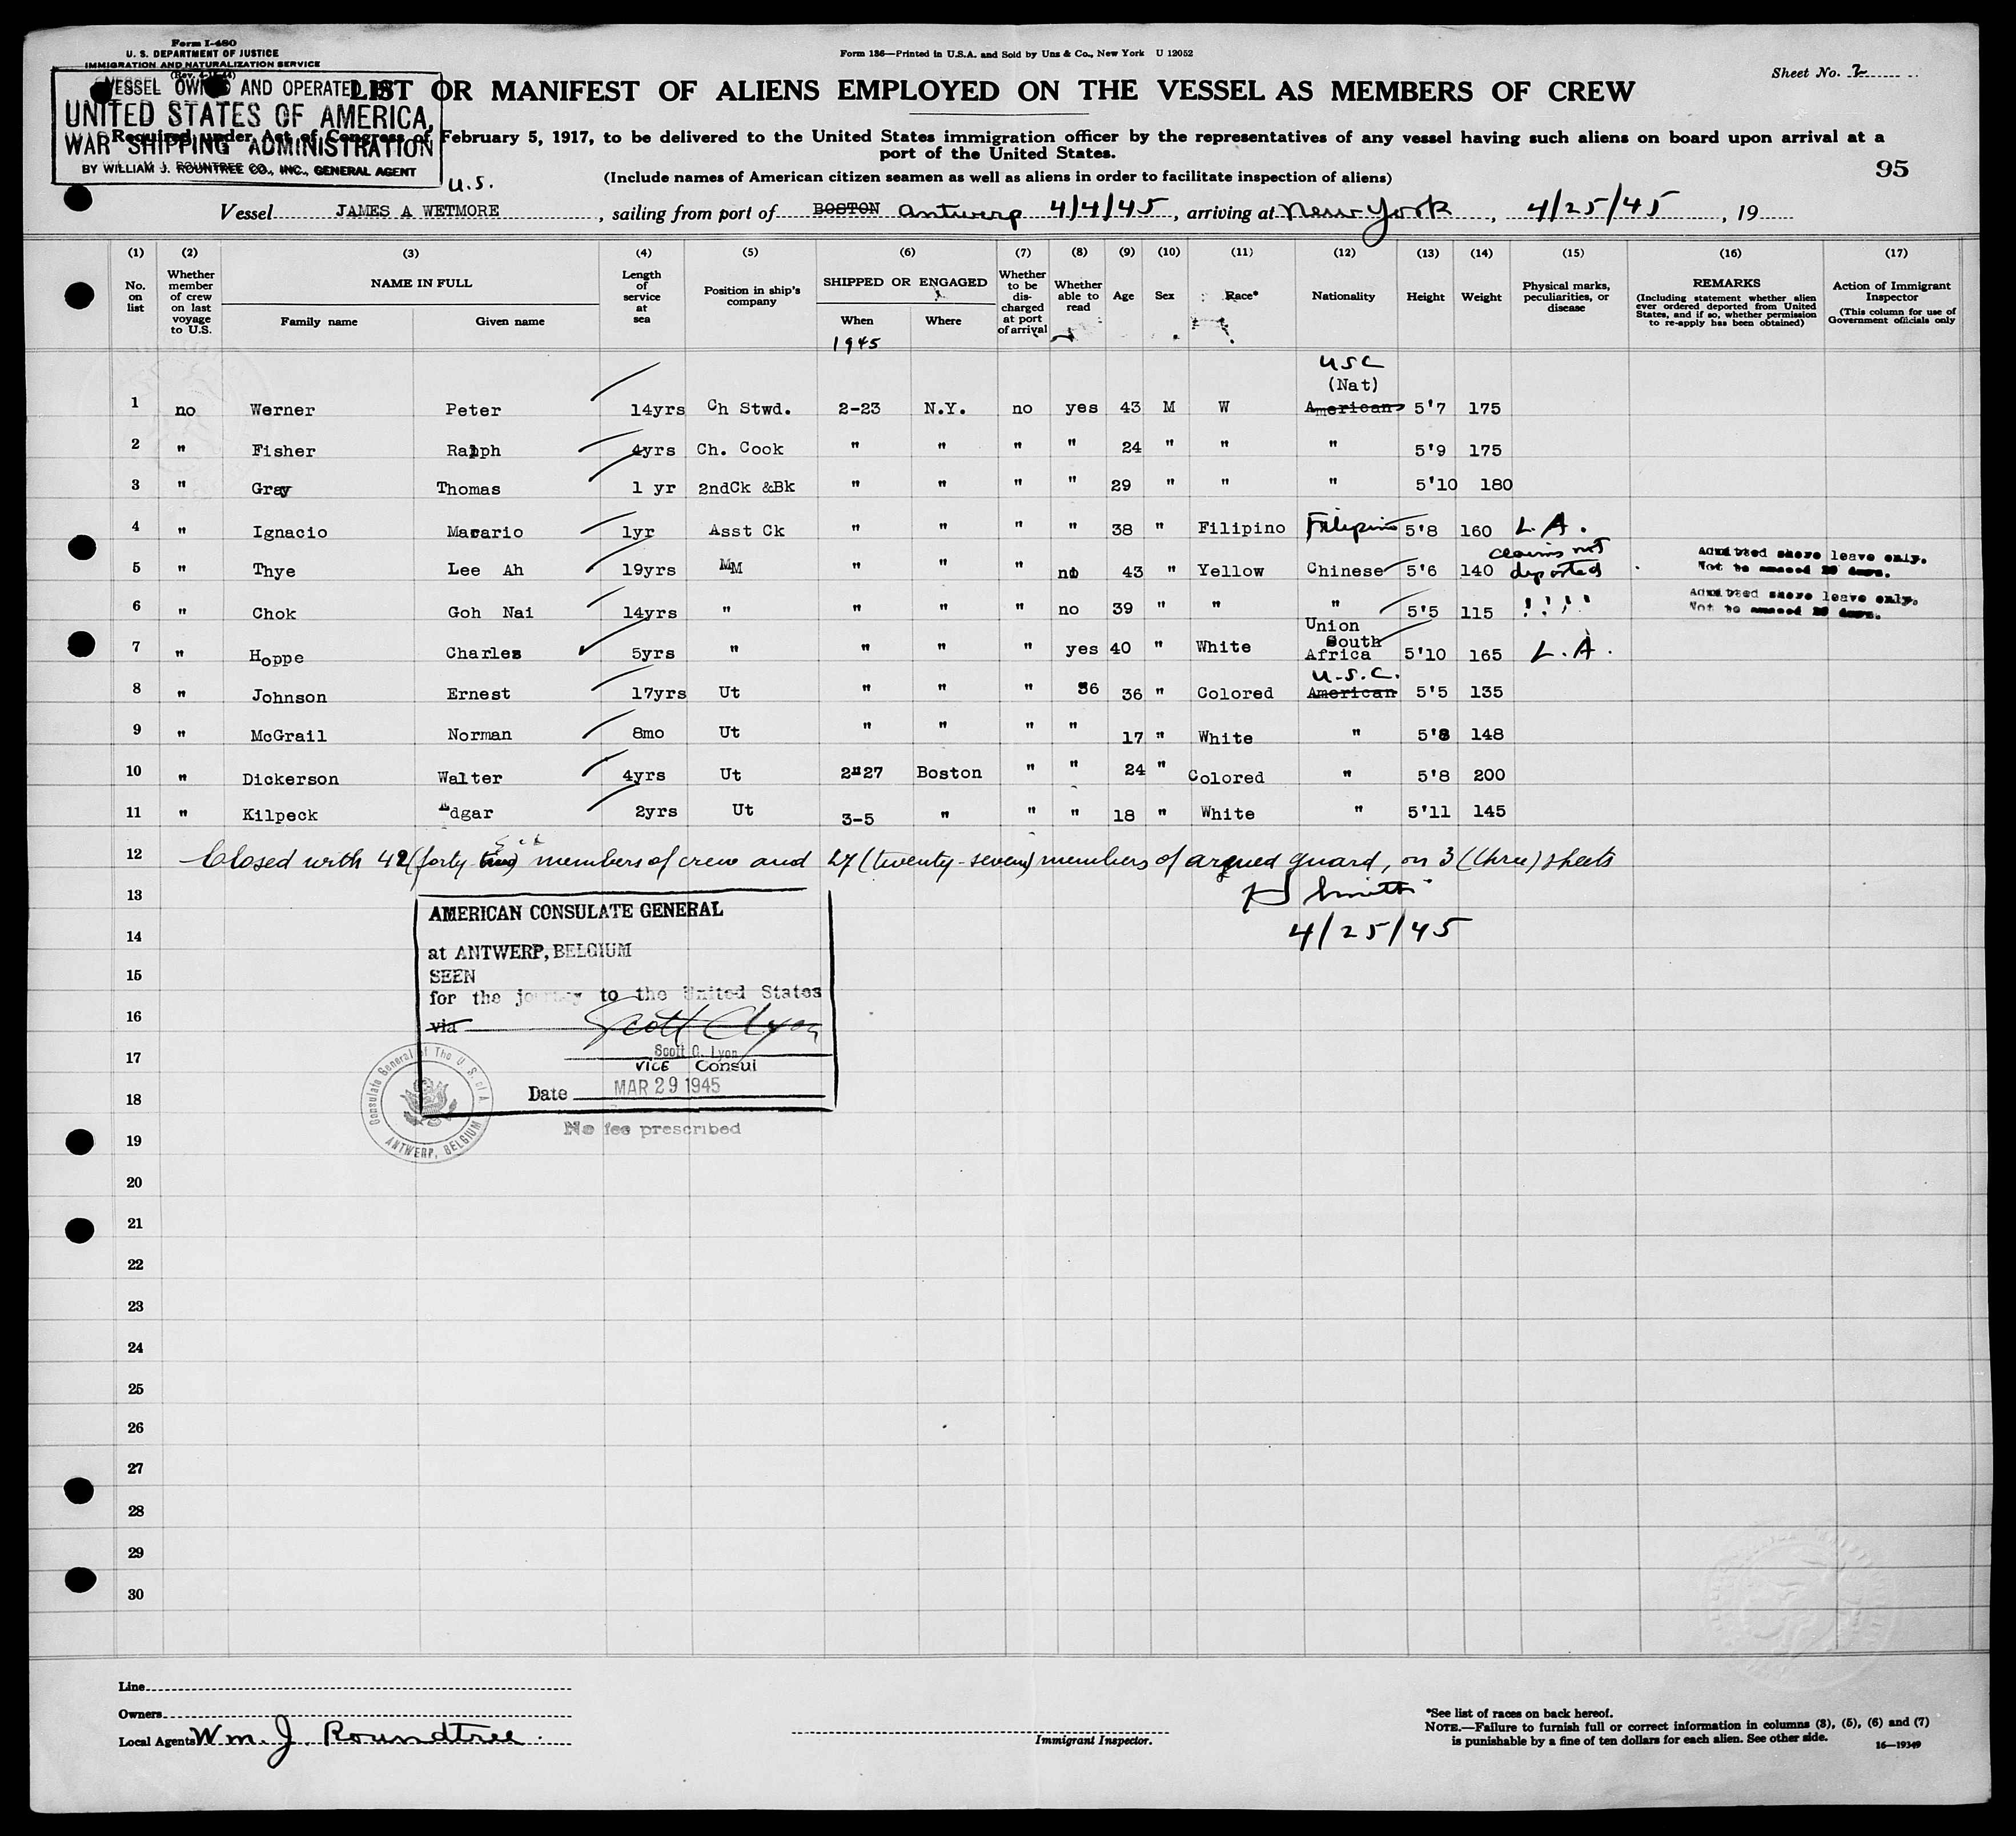 Form I-480
U. S. DEPARTMENT OF JUSTICE
IMMIGRATION AND NATURALIZATION SERVICE
Form 136—Printed in U.S.A. and Sold by Unz & Co., New York U 12052
Sheet No. 2
VESSEL OWNED AND OPERATED BY
UNITED STATES OF AMERICA,
WAR SHIPPING ADMINISTRATION
BY WILLIAM J. ROUNTREE CO., INC., GENERAL AGENT
LIST OR MANIFEST OF ALIENS EMPLOYED ON THE VESSEL AS MEMBERS OF CREW
Required under Act of Congress of February 5, 1917, to be delivered to the United States immigration officer by the representatives of any vessel having such aliens on board upon arrival at a
port of the United States.
95
(Include names of American citizen seamen as well as aliens in order to facilitate inspection of aliens)
U.S.
Vessel JAMES A WETMORE, sailing from port of BOSTON Antwerp 4/4/45, arriving at New York, 4/25/45, 19
(1) (2) (3) (4) (5) (6) (7) (8) (9) (10) (11) (12) (13) (14) (15) (16) (17)
No. on list
Whether member of crew on last voyage to U.S.
NAME IN FULL
Family name Given name
Length of service at sea
Position in ship's company
SHIPPED OR ENGAGED
When Where
1945
Whether to be discharged at port of arrival
Whether able to read
Age Sex Race* Nationality Height Weight
Physical marks, peculiarities, or disease
REMARKS
(Including statement whether alien ever ordered deported from United States, and if so, whether permission to re-apply has been obtained)
Action of Immigrant Inspector
(This column for use of Government officials only
USC
(Nat)
1 no Werner Peter 14yrs Ch Stwd. 2-23 N.Y. no yes 43 M W American 5'7 175
2 " Fisher Ralph 4yrs Ch. Cook " " " " 24 " " " 5'9 175
3 " Gray Thomas 1 yr 2ndCk &Bk " " " " 29 " " " 5'10 180
4 " Ignacio Macario 1yr Asst Ck " " " " 38 " Filipino Filipino 5'8 160 L.A.
5 " Thye Lee Ah 19yrs MM " " " no 43 " Yellow Chinese 5'6 140 claims not deported Admitted shore leave only. Not to exceed 29 days.
6 " Chok Goh Nai 14yrs " " " " no 39 " " " 5'5 115 " " Admitted shore leave only. Not to exceed 29 days.
7 " Hoppe Charles 5yrs " " " " yes 40 " White Union South Africa 5'10 165 L.A.
U.S.C.
8 " Johnson Ernest 17yrs Ut " " " 36 36 " Colored American 5'5 135
9 " McGrail Norman 8mo Ut " " " " 17 " White " 5'8 148
10 " Dickerson Walter 4yrs Ut 2"27 Boston " " 24 " Colored " 5'8 200
11 " Kilpeck Edgar 2yrs Ut 3-5 " " " 18 " White " 5'11 145
12 Closed with 42 (forty two) members of crew and 27 (twenty-seven) members of armed guard, on 3 (three) sheets
13 H Smith
14 4/25/45
AMERICAN CONSULATE GENERAL
at ANTWERP, BELGIUM
15 SEEN
for the journey to the United States
16 via Scott C Lyon
17 Scott C. Lyon
VICE Consul
18 Date MAR 29 1945
Consulate General of The U. S. of A.
ANTWERP, BELGIUM
19 No fee prescribed
20
21
22
23
24
25
26
27
28
29
30
Line
Owners
Local Agents Wm. J. Roundtree.
Immigrant Inspector.
*See list of races on back hereof.
NOTE.—Failure to furnish full or correct information in columns (3), (5), (6) and (7)
is punishable by a fine of ten dollars for each alien. See other side.
16—19349